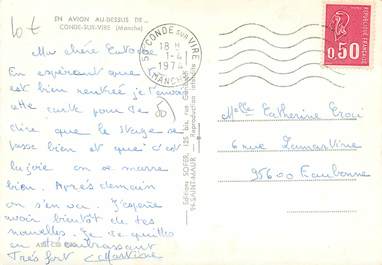 10 €
EN AVION AU-DESSUS DE...
CONDE-SUR-VIRE (Manche)
50 CONDE SUR VIRE
18 H
1-4
1974
(MANCHE)
REPUBLIQUE FRANÇAISE
0,50
Ma chère
En espérant que
est bien rentrée je t'envoie
cette carte pour te
dire que le stage se
passe bien et que c'est
la joie on se marre
bien. Après demain
on s'en va. J'espère
avoir bientôt de tes
nouvelles. Je te quitte
en t'embrassant
Très fort
Editions SOFER, 125 bis, rue Garibaldi
94-SAINT-MAUR - Reproduction interdite
50
Melle Catherine
6 rue Lamartine
95600 Eaubonne